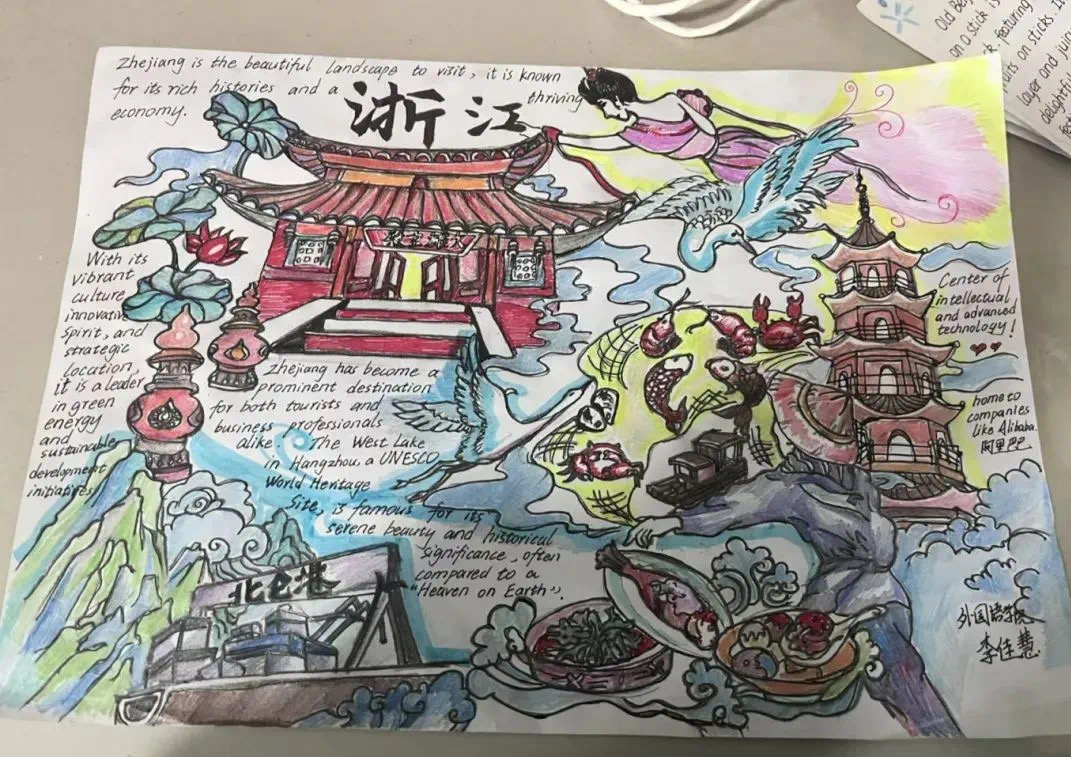 Zhejiang is the beautiful landscape to visit, it is known
for its rich histories and a thriving
economy.
浙江
大雄宝殿
With its
vibrant
culture
innovative
spirit, and
strategic
location,
it is a leader
in green
energy
and
sustainable
development
initiatives
Zhejiang has become a
prominent destination
for both tourists and
business professionals
alike. The West Lake
in Hangzhou, a UNESCO
World Heritage
Site, is famous for its
serene beauty and historical
significance, often
compared to a
"Heaven on Earth".
Center of
intellectual
and advanced
technology!
home to
companies
like Alibaba.
阿里巴巴
北仑港
外国语学院
李佳慧
Old Bei
on a stick is
featuring
fruits on sticks. It
layer and jui
delightful